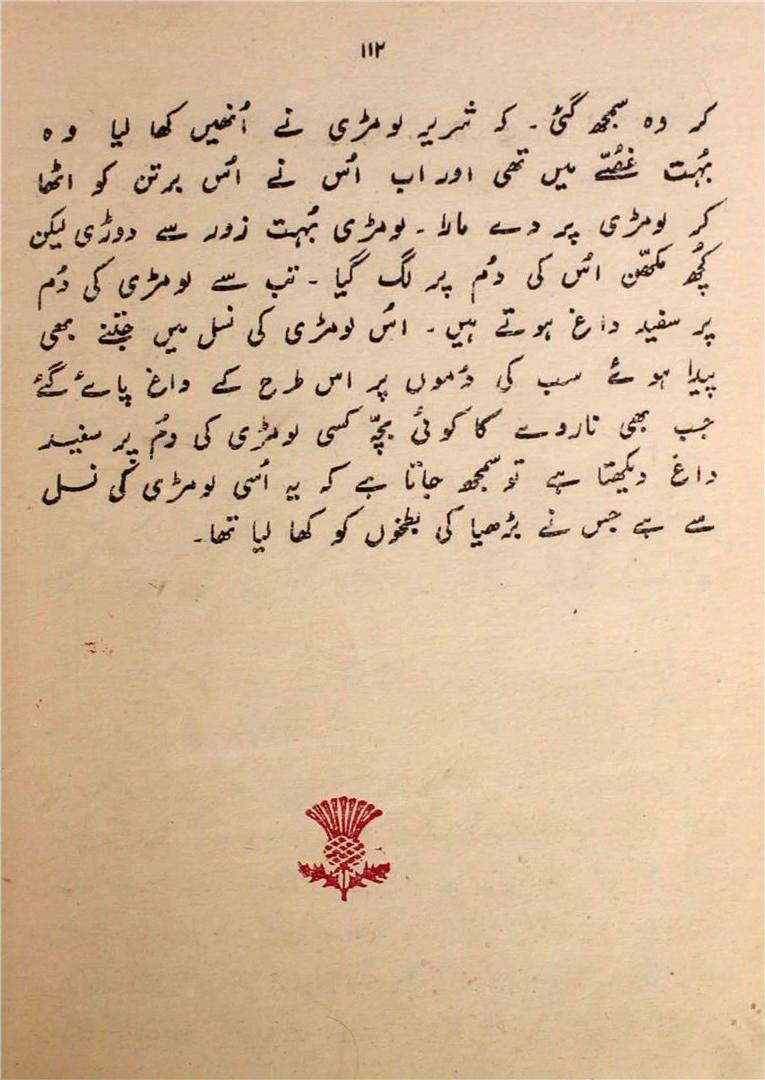 ۱۱۲
کر وہ سمجھ گئی۔ کہ شریر لومڑی نے اُنھیں کھا لیا وہ
بُہت غصّے میں تھی اور اب اُس نے اُس برتن کو اٹھا
کر لومڑی پر دے مارا۔ لومڑی بُہت زور سے دوڑی لیکن
کُچھ مکھّن اُس کی دُم پر لگ گیا۔ تب سے لومڑی کی دُم
پر سفید داغ ہوتے ہیں۔ اس لومڑی کی نسل میں جتنے بھی
پیدا ہوئے سب کی دُموں پر اس طرح کے داغ پائے گئے
جب بھی ناروے کا کوئی بچّہ کسی لومڑی کی دُم پر سفید
داغ دیکھتا ہے تو سمجھ جاتا ہے کہ یہ اُسی لومڑی کی نسل
سے ہے جس نے بڑھیا کی بطخوں کو کھا لیا تھا۔